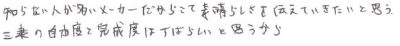 知らない人が多いメーカーだからこそ素晴らしさを伝えていきたいと思う
三菱の自由度と完成度はすばらしいと思うから